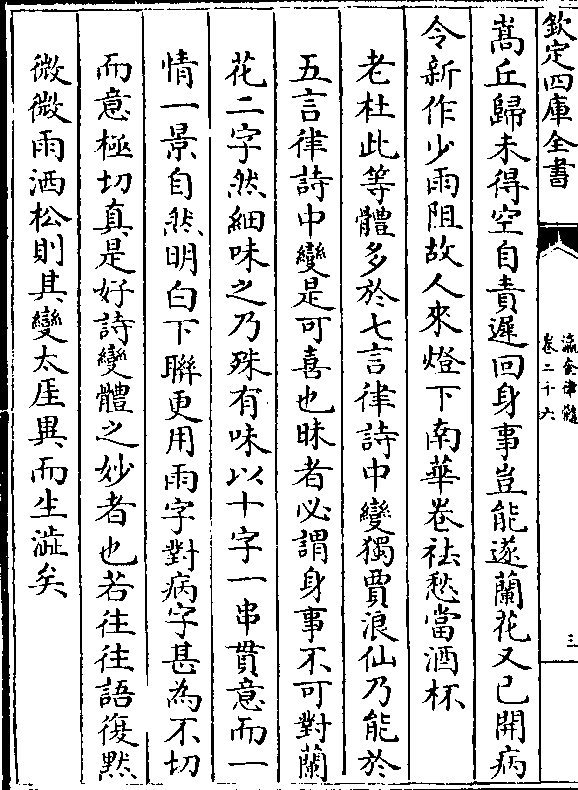 欽定四庫全書
瀛奎律髓
卷二十六
三
嵩丘歸未得空自責遲回身事豈能遂蘭花又已開病
令新作少雨阻故人來燈下南華卷祛愁當酒杯
老杜此等體多於七言律詩中變獨賈浪仙乃能於
五言律詩中變是可喜也昧者必謂身事不可對蘭
花二字然細味之乃殊有味以十字一串貫意而一
情一景自然明白下聯更用雨字對病字甚為不切
而意極切真是好詩變體之妙者也若往往語復黙
微微雨洒松則其變太厓異而生澁矣